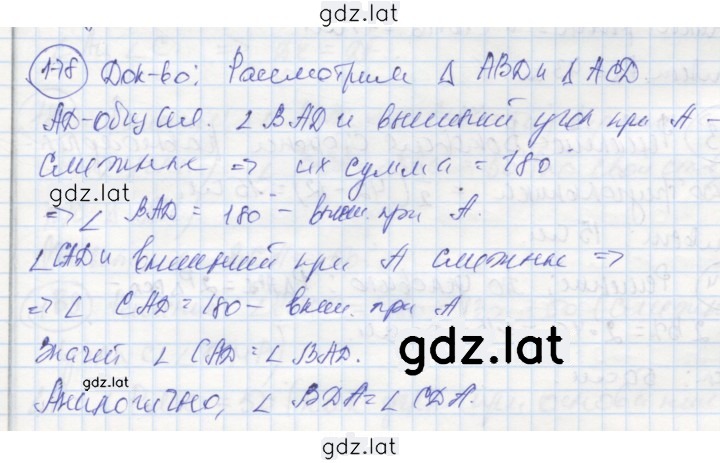 gdz.lat
178 Док-во: Рассмотрим Δ ABD и Δ ACD
AD-общая. ∠ BAD и внешний угол при A -
смежные => их сумма = 180°
gdz.lat
=> ∠ BAD = 180° - внеш. при A.
∠CAD и внешний при A смежные =>
=> ∠ CAD = 180 - внеш. при A
значит ∠ CAD = ∠ BAD.
gdz.lat
gdz.lat
Аналогично, ∠ BDA = ∠ CDA.
gdz.lat